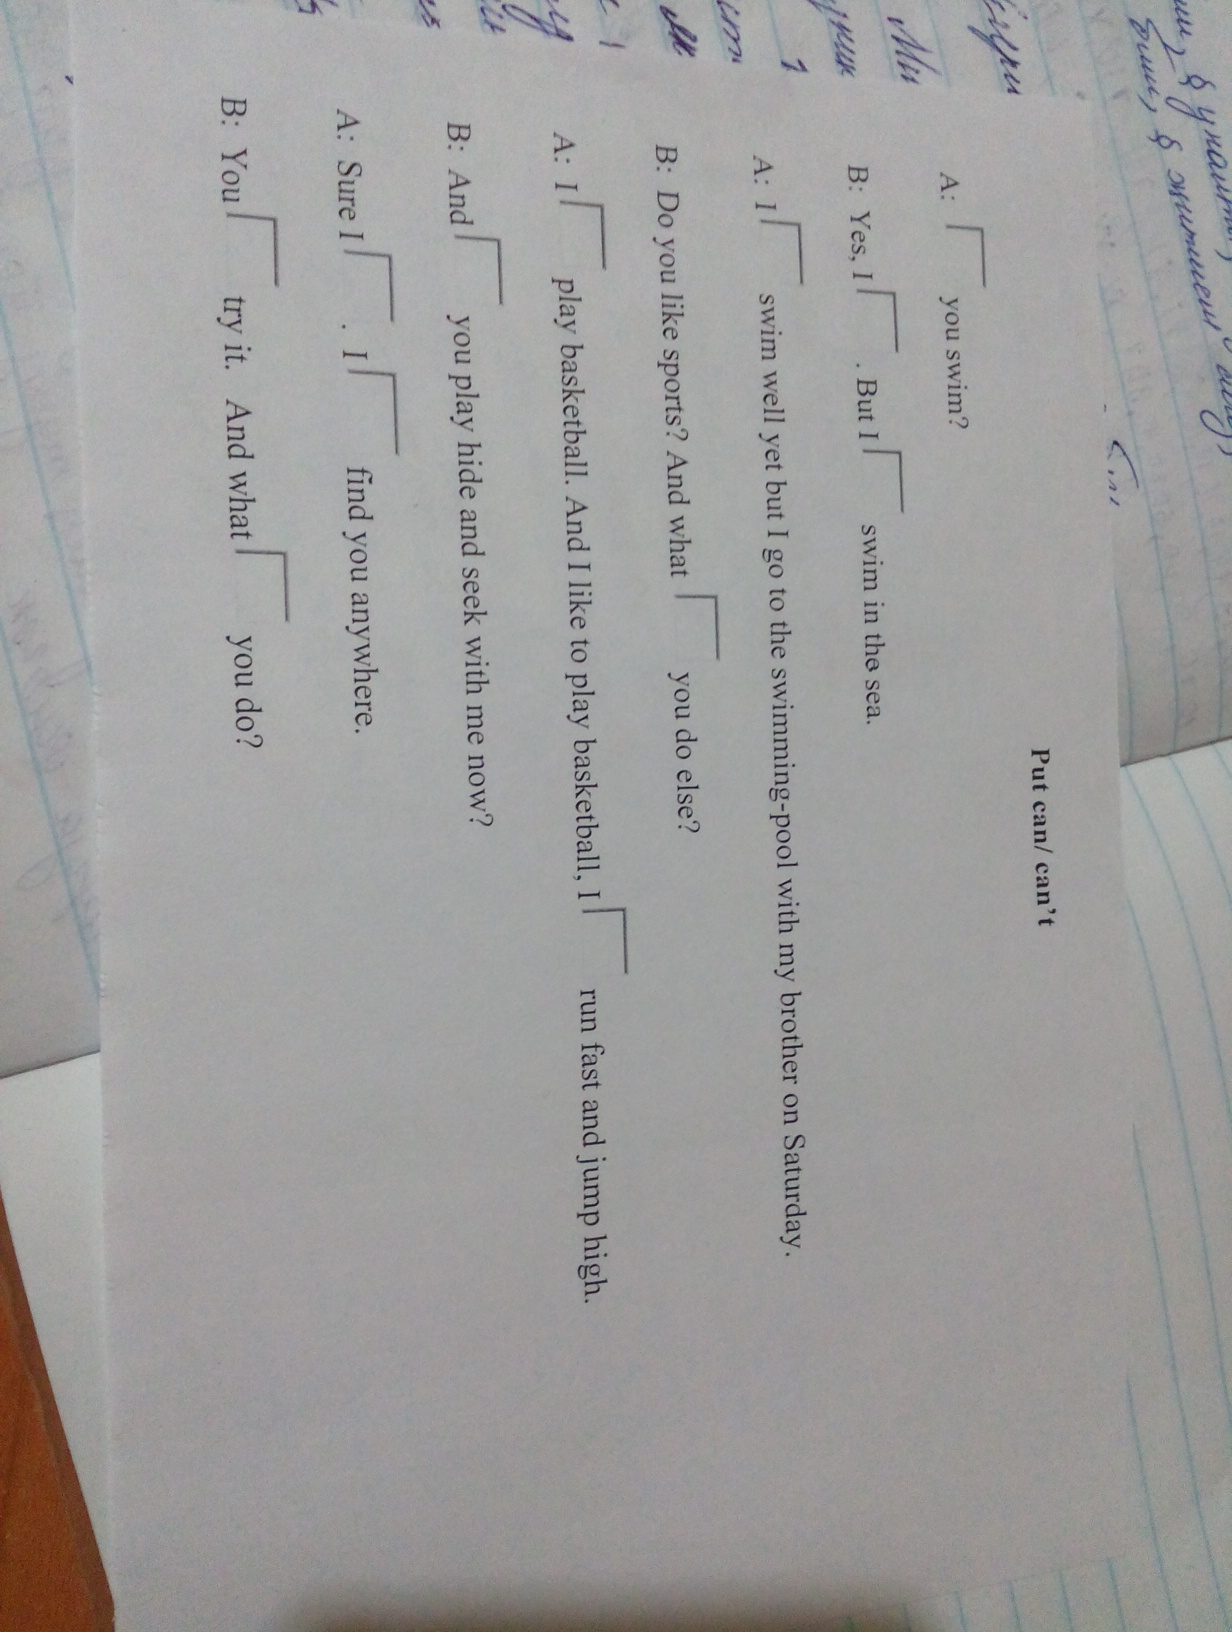 Put can/ can't
A: you swim?
B: Yes, I . But I swim in the sea.
A: I swim well yet but I go to the swimming-pool with my brother on Saturday.
B: Do you like sports? And what you do else?
A: I play basketball. And I like to play basketball, I run fast and jump high.
B: And you play hide and seek with me now?
A: Sure I . I find you anywhere.
B: You try it. And what you do?